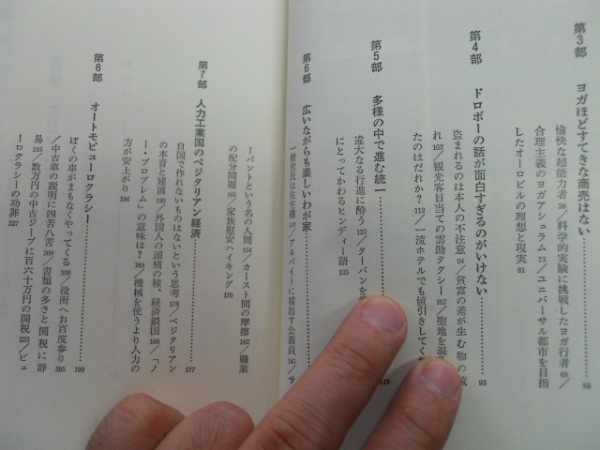 第3部 ヨガほどすてきな商売はない……55
愉快な超能力者 56／科学的実験に挑戦したヨガ行者 65／
合理主義のヨガアシュラム 73／ユニバーサル都市を目指
したオーロビルの理想と現実 81
第4部 ドロボーの話が面白すぎるのがいけない……93
盗まれるのは本人の不注意 94／貧富の差が生む物の流
れ 102／観光客目当ての雲助タクシー 107／聖地を
たのはだれか？ 112／一流ホテルでも値引きしてく
第5部 多様の中で進む統一……119
遠大なる行進に酔う 120／ターバンを
にとってかわるヒンディー語 135
第6部 広いながらも楽しいわが家
一般市民は生モ 145／アルバイトに精出す公務員
ーバントという名の人間 158／カースト間の摩擦 162／職業
の配分問題 165／家族慰安ハイキング 170
第7部 人力工業国のベジタリアン経済……177
自国で作れないものはないという思考 178／ベジタリアン
の本音と建前／外国人の頭痛の種、経済鎖国 186／「ノ
ー・プロブレム」の意味は？ 190／機械を使うより人力の
方が安上がり 194
第8部 オートモビューロクラシー……199
ぼくの車がまもなくやってくる 200／役所へお百度参り
／中古車の説明に四苦八苦 209／書類の多さと関税に辟
易 215／数万円の中古ジープに百六十万円の関税 223／ビュ
ーロクラシーの功罪 227